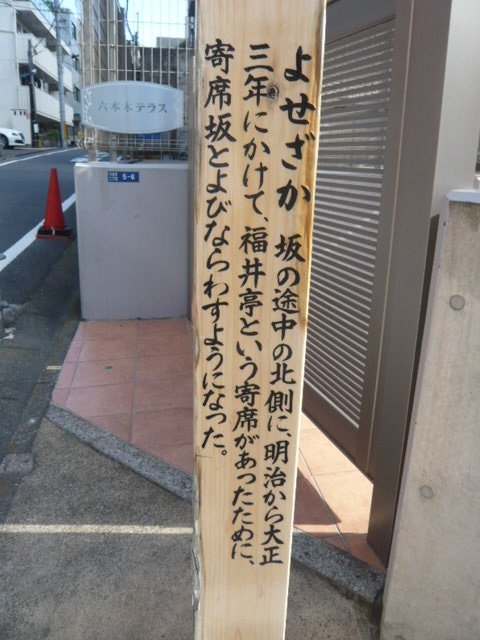 よせざか 坂の途中の北側に、明治から大正
三年にかけて、福井亭という寄席があったために、
寄席坂とよびならわすようになった。
六本木テラス
5-6